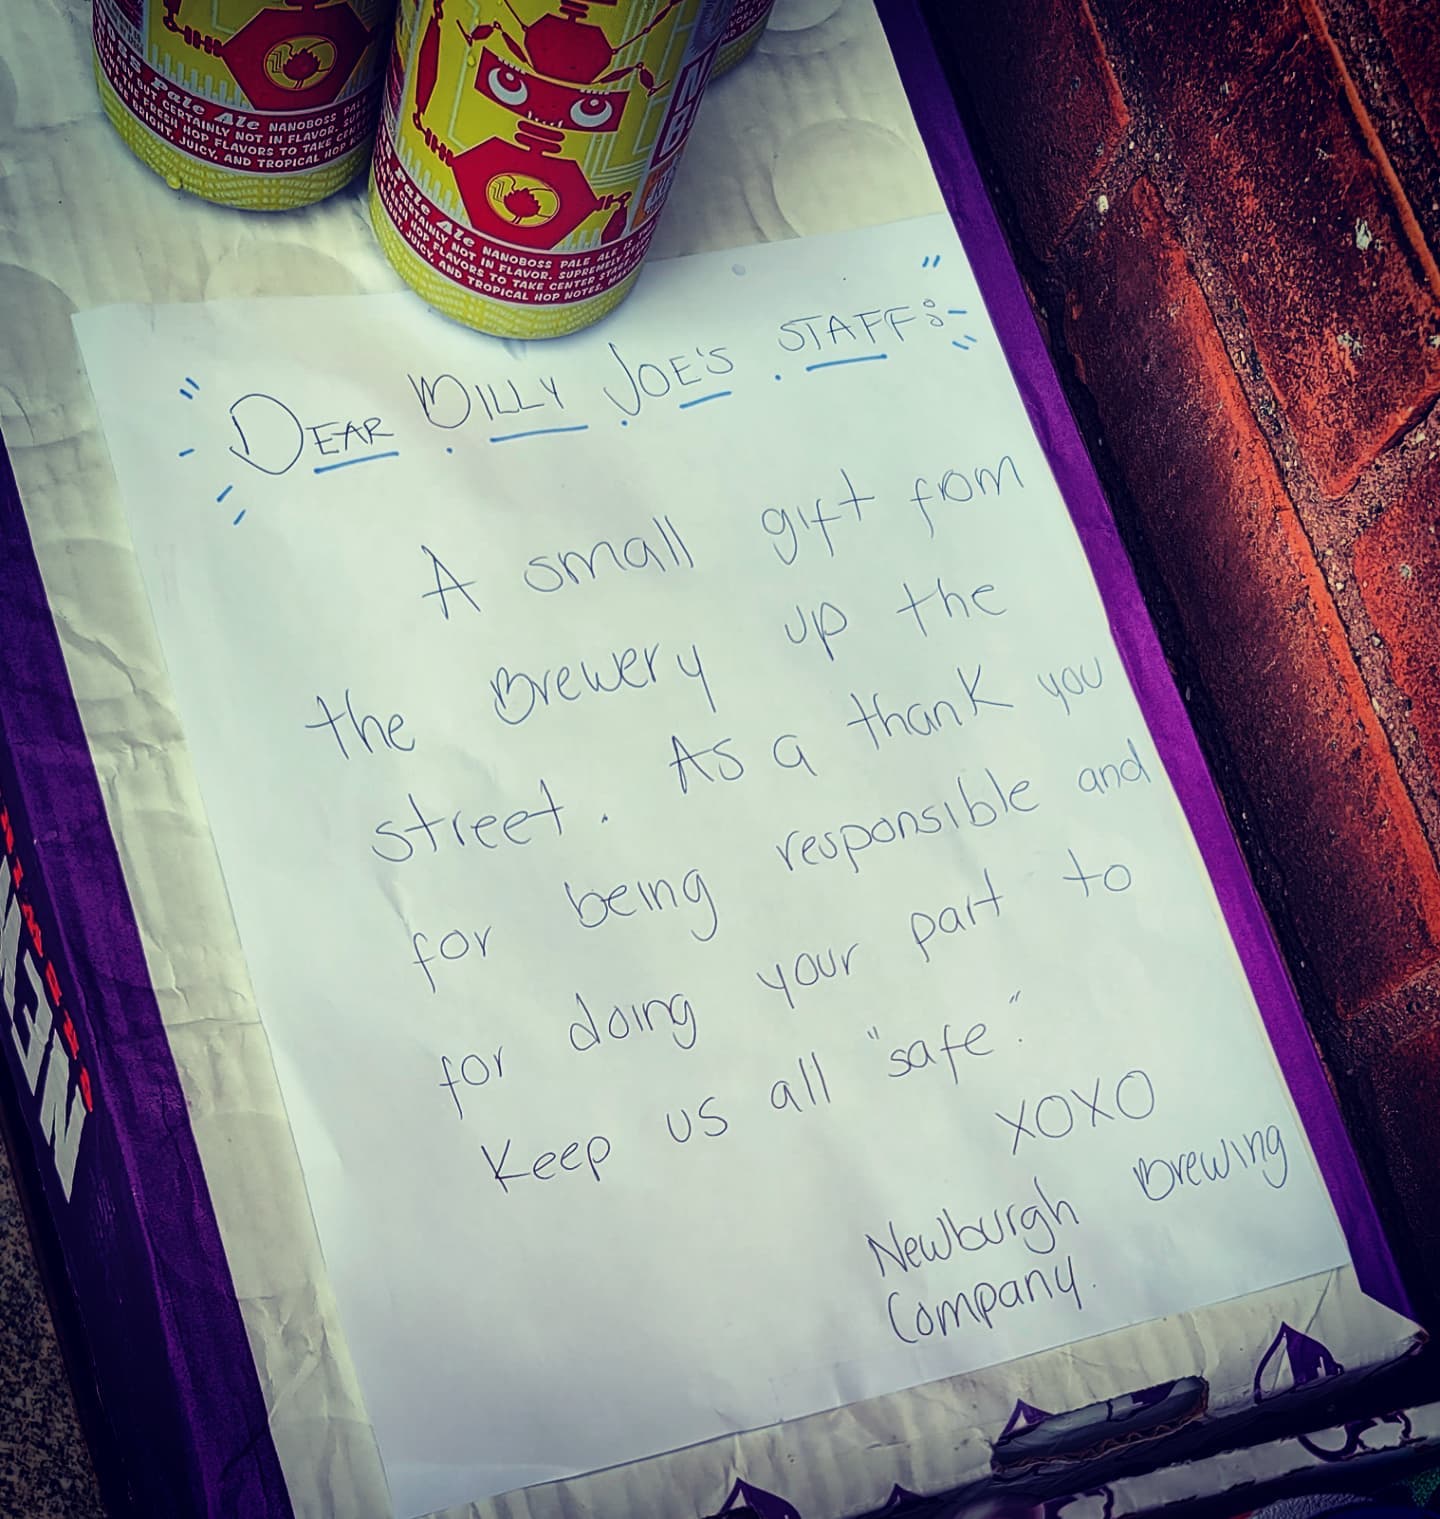 Pale Ale NANOBOSS PALE
BUT CERTAINLY NOT IN FLAVOR.
FRESH HOP FLAVORS TO TAKE
JUICY, AND TROPICAL HOP
Pale Ale NANOBOSS PALE ALE IS
CERTAINLY NOT IN FLAVOR. SUPREMELY
FRESH HOP FLAVORS TO TAKE CENTER STAGE
JUICY, AND TROPICAL HOP NOTES.
DEAR BILLY JOE'S STAFF:
A small gift from
the Brewery up the
street. As a thank you
for being responsible and
for doing your part to
Keep us all "safe".
XOXO
Newburgh Brewing
Company.